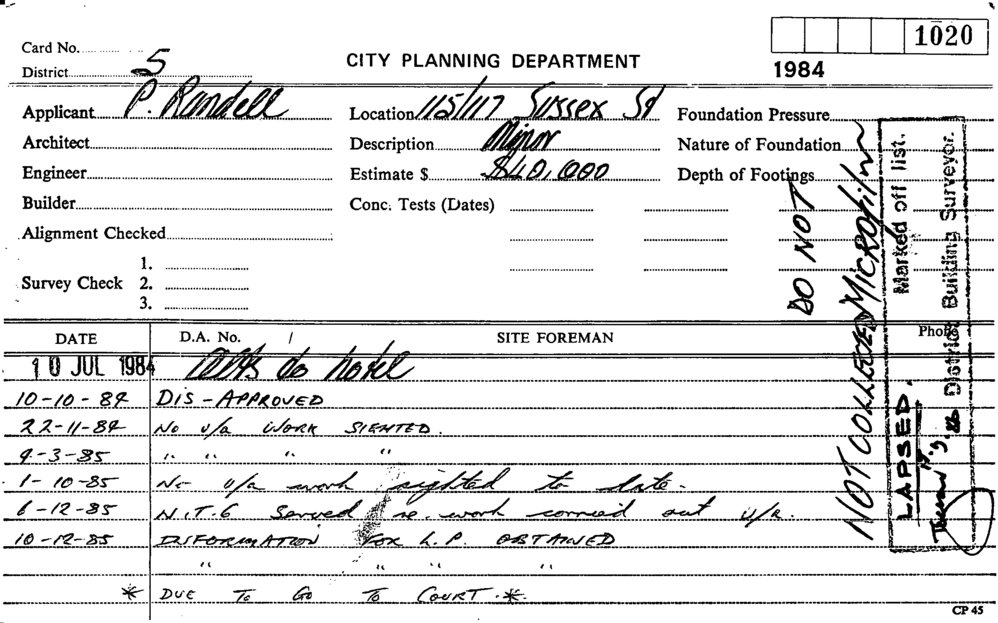 1020
Card No.
CITY PLANNING DEPARTMENT
1984
District 5
Applicant P. Randell
Location 115/117 Sussex St
Foundation Pressure
Architect
Description Minor
Nature of Foundation
Engineer
Estimate $ $40,000
Depth of Footings
Builder
Conc. Tests (Dates)
Alignment Checked
1.
Survey Check 2.
3.
DATE D.A. No. / SITE FOREMAN Phone
10 JUL 1984 Alts to hotel
10-10-84 DIS-APPROVED
22-11-84 No u/a WORK SIGHTED.
4-3-85 " " " "
1-10-85 No u/a work sighted to date.
6-12-85 N.T.G Served re. work carried out u/a.
10-12-85 INFORMATION FOR L.P. OBTAINED
" " " "
* DUE TO GO TO COURT.*
CP 45
DO NOT
NOT COLLECTED MICROFILM
LAPSED.
Marked off list.
District Building Surveyor.